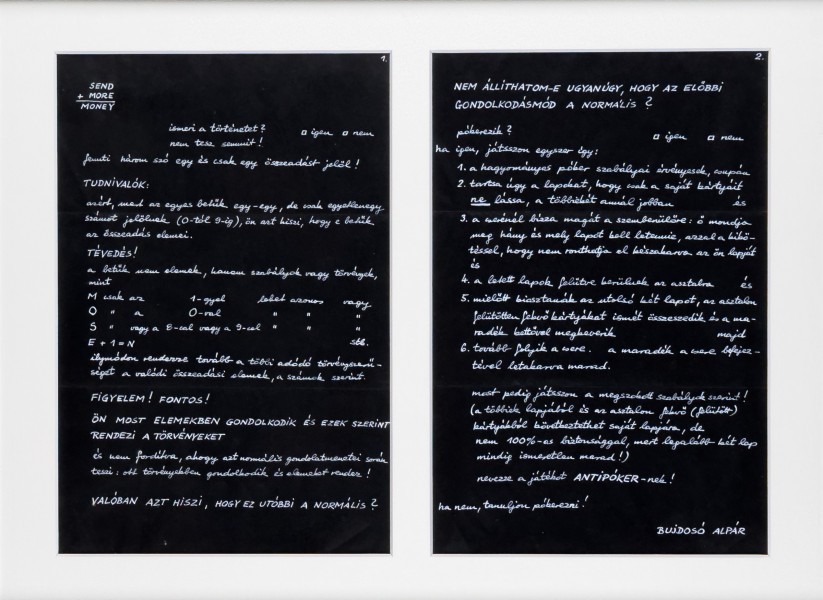 1.
SEND
+ MORE
MONEY
ismeri a történetet? □ igen □ nem
nem tesz semmit!
fenti három szó egy és csak egy összeadást jelöl!
TUDNIVALÓK:
azért, mert az egyes betűk egy-egy, de csak egyetlenegy
számot jelölnek (0-tól 9-ig), ön azt hiszi, hogy e betűk
az összeadás elemei.
TÉVEDÉS!
a betűk nem elemek, hanem szabályok vagy törvények,
mint
M csak az 1-gyel lehet azonos vagy
O " a 0-val " " "
S " vagy a 8-cal vagy a 9-cel " " "
E + 1 = N stb.
ilymódon rendezze tovább a többi adódó törvényszerű-
séget a valódi összeadási elemek, a számok szerint.
FIGYELEM! FONTOS!
ÖN MOST ELEMEKBEN GONDOLKODIK ÉS EZEK SZERINT
RENDEZI A TÖRVÉNYEKET
és nem fordítva, ahogy azt normális gondolatmenetei során
teszi: ott törvényekben gondolkodik és elemeket rendez!
VALÓBAN AZT HISZI, HOGY EZ UTÓBBI A NORMÁLIS?
2.
NEM ÁLLÍTHATOM-E UGYANÚGY, HOGY AZ ELŐBBI
GONDOLKODÁSMÓD A NORMÁLIS?
pókerezik? □ igen □ nem
ha igen, játsszon egyszer így:
1. a hagyományos póker szabályai érvényesek, csupán
2. tartsa úgy a lapokat, hogy csak a saját kártyáit
ne lássa, a többiekét annál jobban és
3. a cserénél bízza magát a szembenülőre: ő mondja
meg hány és mely lapot kell letennie, azzal a kikö-
téssel, hogy nem ronthatja el készakarva az ön lapját
és
4. a letett lapok felütve kerülnek az asztalra és
5. mielőtt kiosztanák az utolsó két lapot, az asztalon
felütötten fekvő kártyákat ismét összeszedik és a ma-
radék kettővel megkeverik majd
6. tovább folyik a csere. a maradék a csere befejez-
tével letakarva marad.
most pedig játsszon a megszokott szabályok szerint!
(a többiek lapjaiból és az asztalon fekvő (felütött)
kártyákból következtethet saját lapjára, de
nem 100%-os biztonsággal, mert legalább két lap
mindig ismeretlen marad!)
nevezze a játékot ANTIPÓKER-nek!
ha nem, tanuljon pókerezni!
BUJDOSÓ ALPÁR